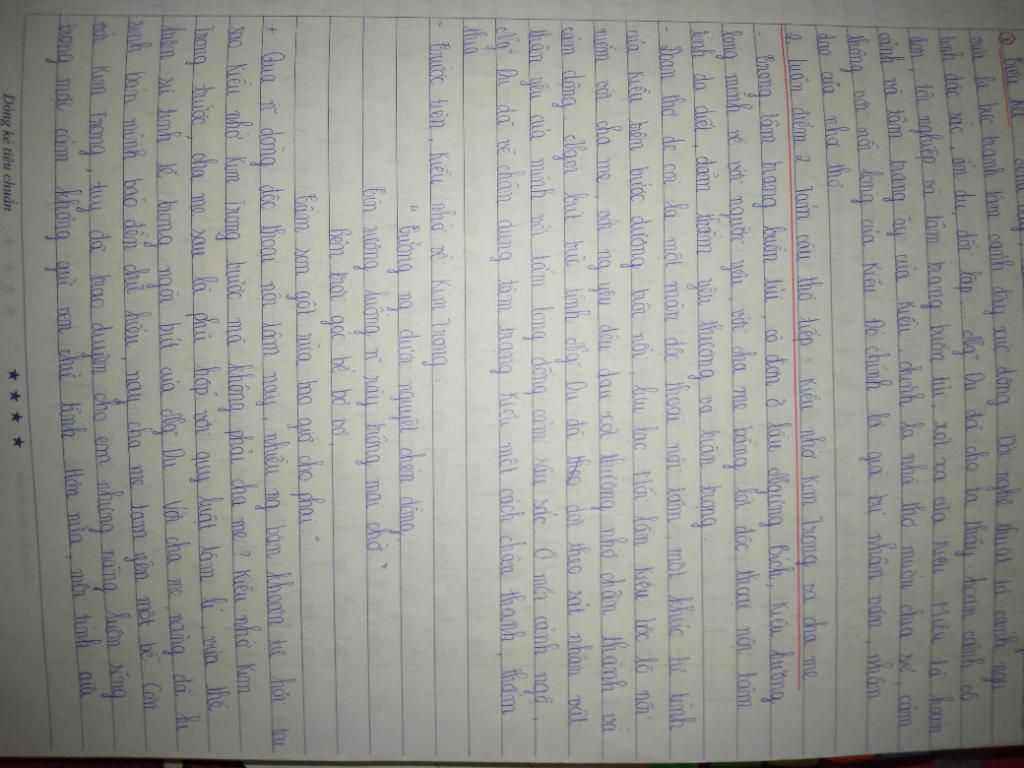 ①
tình độc xác, ẩn dụ, đối lập... Ng~ Du đã cho ta thấy hoàn cảnh cô
đơn, tội nghiệp và tâm trạng buồn tủi, xót xa của Kiều. Miêu tả hoàn
cảnh và tâm trạng ấy của Kiều, chính là nhà thơ muốn chia sẻ, cảm
thông với nỗi lòng của Kiều. Đó chính là giá trị nhân văn, nhân
đạo của nhà thơ
2. Luận điểm 2: Tám câu thơ tiếp: Kiều nhớ Kim Trọng và cha mẹ
- Trong tâm trạng buồn tủi, cô đơn ở lầu Ngưng Bích, Kiều hướng
lòng mình về với người yêu, với cha mẹ bằng lời độc thoại nội tâm
tình da diết, đằm thắm yêu thương và trân trọng
- Đoạn thơ đc coi là một màn độc thoại nội tâm, một khúc tự tình
của Kiều trên bước đường trôi nổi, lưu lạc. Mối tâm Kiều bộc lộ nỗi
niềm với cha mẹ, với ng yêu đều đau xót thương nhớ chân thành và
cảm động. Ngòi bút trữ tình Ng~ Du đã dõi theo sát nhân vật
thân yêu của mình với tấm lòng đồng cảm sâu sắc. Ở mỗi cảnh ngộ,
Ng~ Du đã vẽ chân dung tâm trạng Kiều một cách chân thành, thấm
thía
- Trước tiên, Kiều nhớ về Kim Trọng:
" Tưởng ng dưới nguyệt chén đồng,
Tin sương luống n~ rày trông mai chờ.
Bên trời góc bể bơ vơ,
Tấm son gột rửa bao giờ cho phai "
+ Qua n~ dòng độc thoại nội tâm này, nhiều ng băn khoăn tự hỏi tại
sao Kiều nhớ Kim Trọng trước mà không phải cha mẹ? Kiều nhớ Kim
Trọng trước, cha mẹ sau là phù hợp với quy luật tâm lí, vừa thể
hiện sự tinh tế trong ngòi bút của Ng~ Du. Với cha mẹ, nàng đã hi
sinh bán mình báo đền chữ hiếu, nay cha mẹ tạm yên một bề. Còn
với Kim Trọng, tuy đã trao duyên cho em nhưng nàng luôn sống
trong mặc cảm không giữ vẹn chữ tình. Hơn nữa, mối tình của
Dòng kẻ tiêu chuẩn